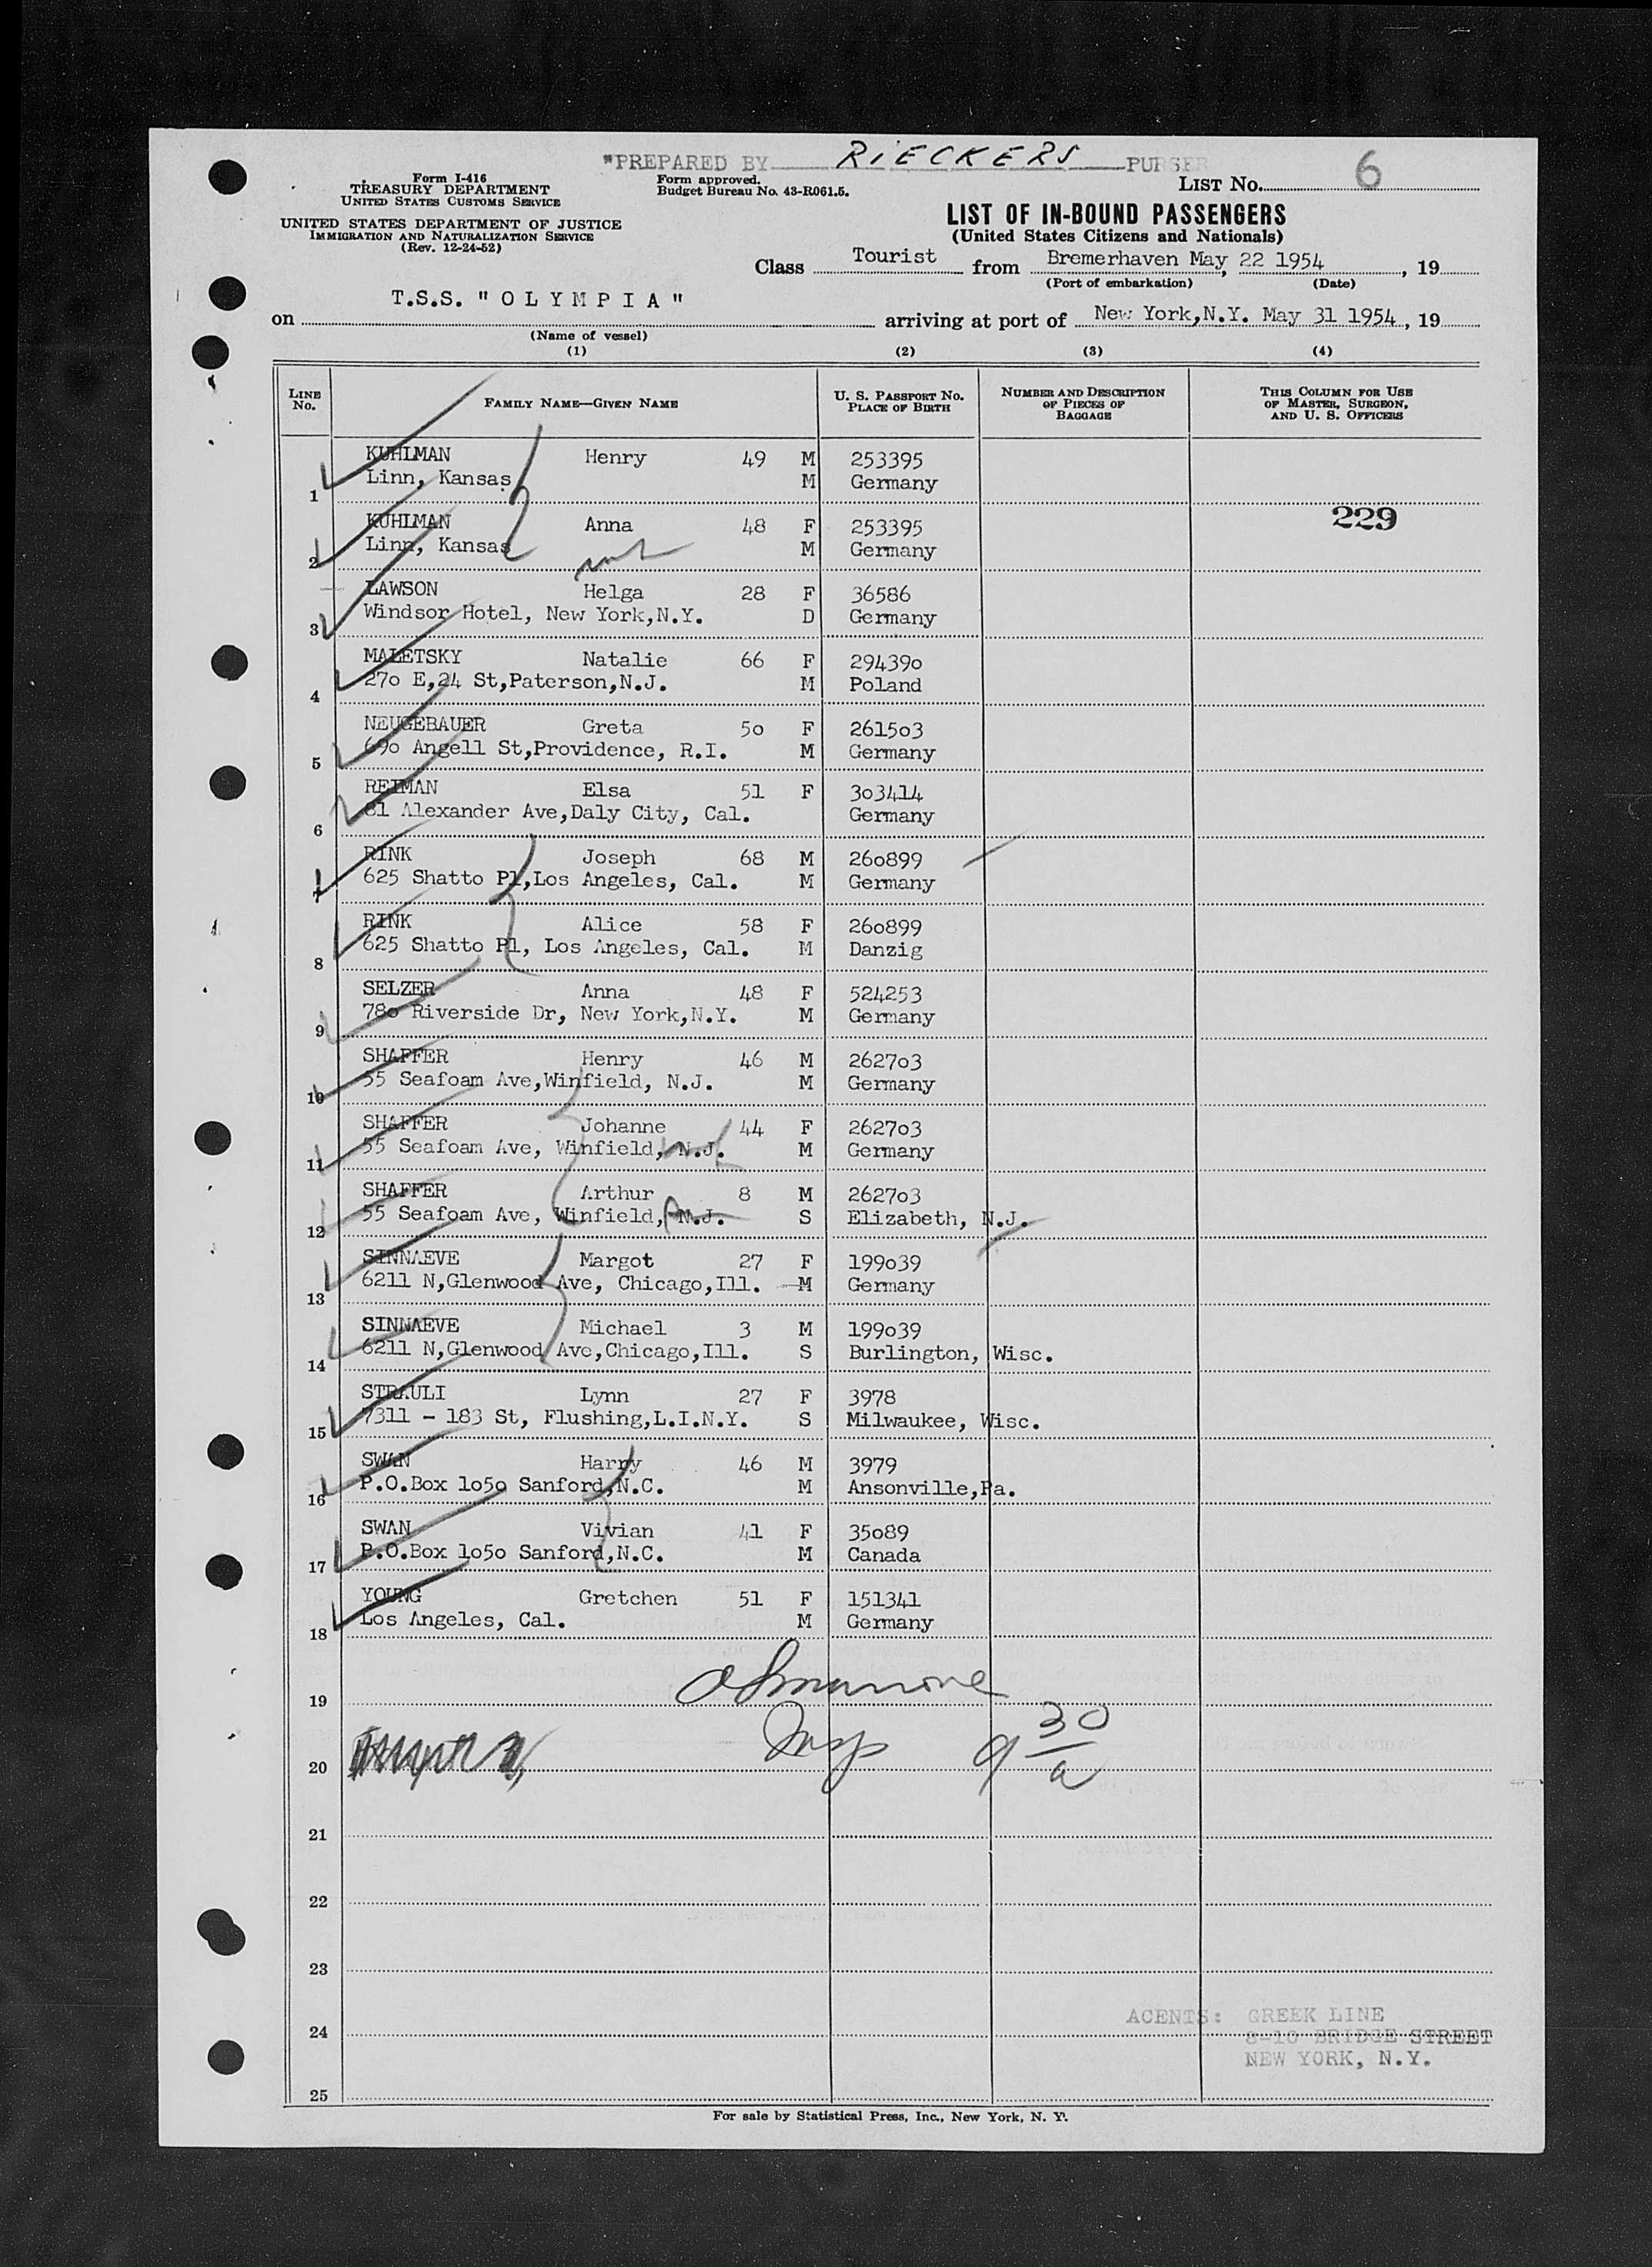 "PREPARED BY RIECKERS PURSER
Form I-416
TREASURY DEPARTMENT
UNITED STATES CUSTOMS SERVICE
Form approved.
Budget Bureau No. 43-R061.5.
LIST No. 6
UNITED STATES DEPARTMENT OF JUSTICE
IMMIGRATION AND NATURALIZATION SERVICE
(Rev. 12-24-52)
LIST OF IN-BOUND PASSENGERS
(United States Citizens and Nationals)
Class Tourist from Bremerhaven May, 22 1954, 19
(Port of embarkation) (Date)
on T.S.S. "OLYMPIA" arriving at port of New York,N.Y. May 31 1954, 19
(Name of vessel)
(1) (2) (3) (4)
LINE No. FAMILY NAME—GIVEN NAME U. S. PASSPORT No. PLACE OF BIRTH NUMBER AND DESCRIPTION OF PIECES OF BAGGAGE THIS COLUMN FOR USE OF MASTER, SURGEON, AND U. S. OFFICERS
KUHLMAN Henry 49 M 253395
1 Linn, Kansas M Germany
229
KUHLMAN Anna 48 F 253395
2 Linn, Kansas M Germany
LAWSON Helga 28 F 36586
3 Windsor Hotel, New York,N.Y. D Germany
MALETSKY Natalie 66 F 29439o
4 27o E,24 St,Paterson,N.J. M Poland
NEUGEBAUER Greta 5o F 2615o3
5 69o Angell St,Providence, R.I. M Germany
REIMAN Elsa 51 F 3o3414
6 81 Alexander Ave,Daly City, Cal. Germany
RINK Joseph 68 M 26o899
7 625 Shatto Pl,Los Angeles, Cal. M Germany
RINK Alice 58 F 26o899
8 625 Shatto Pl, Los Angeles, Cal. M Danzig
SELZER Anna 48 F 524253
9 78o Riverside Dr, New York,N.Y. M Germany
SHAFFER Henry 46 M 2627o3
10 55 Seafoam Ave,Winfield, N.J. M Germany
SHAFFER Johanne 44 F 2627o3
11 55 Seafoam Ave, Winfield, N.J. M Germany
SHAFFER Arthur 8 M 2627o3
12 55 Seafoam Ave, Winfield, N.J. S Elizabeth, N.J.
SINNAEVE Margot 27 F 199o39
13 6211 N,Glenwood Ave, Chicago,Ill. M Germany
SINNAEVE Michael 3 M 199o39
14 6211 N,Glenwood Ave,Chicago,Ill. S Burlington, Wisc.
STRAULI Lynn 27 F 3978
15 7311 - 183 St, Flushing,L.I.N.Y. S Milwaukee, Wisc.
SWAN Harry 46 M 3979
16 P.O.Box 1o5o Sanford,N.C. M Ansonville,Pa.
SWAN Vivian 41 F 35o89
17 P.O.Box 1o5o Sanford,N.C. M Canada
YOUNG Gretchen 51 F 151341
18 Los Angeles, Cal. M Germany
19
20 Insp 9 30/a
21
22
23
AGENTS: GREEK LINE
24 8-10 BRIDGE STREET
NEW YORK, N.Y.
25
For sale by Statistical Press, Inc., New York, N. Y.